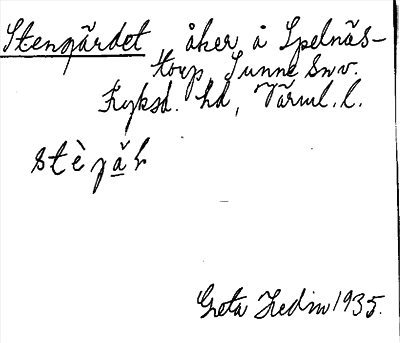 Stengärdet åker å Spelnäs-
torp, Sunne Snv.
Fryksd. hd, Värml. l.
stèj
Greta Hedin 1935.